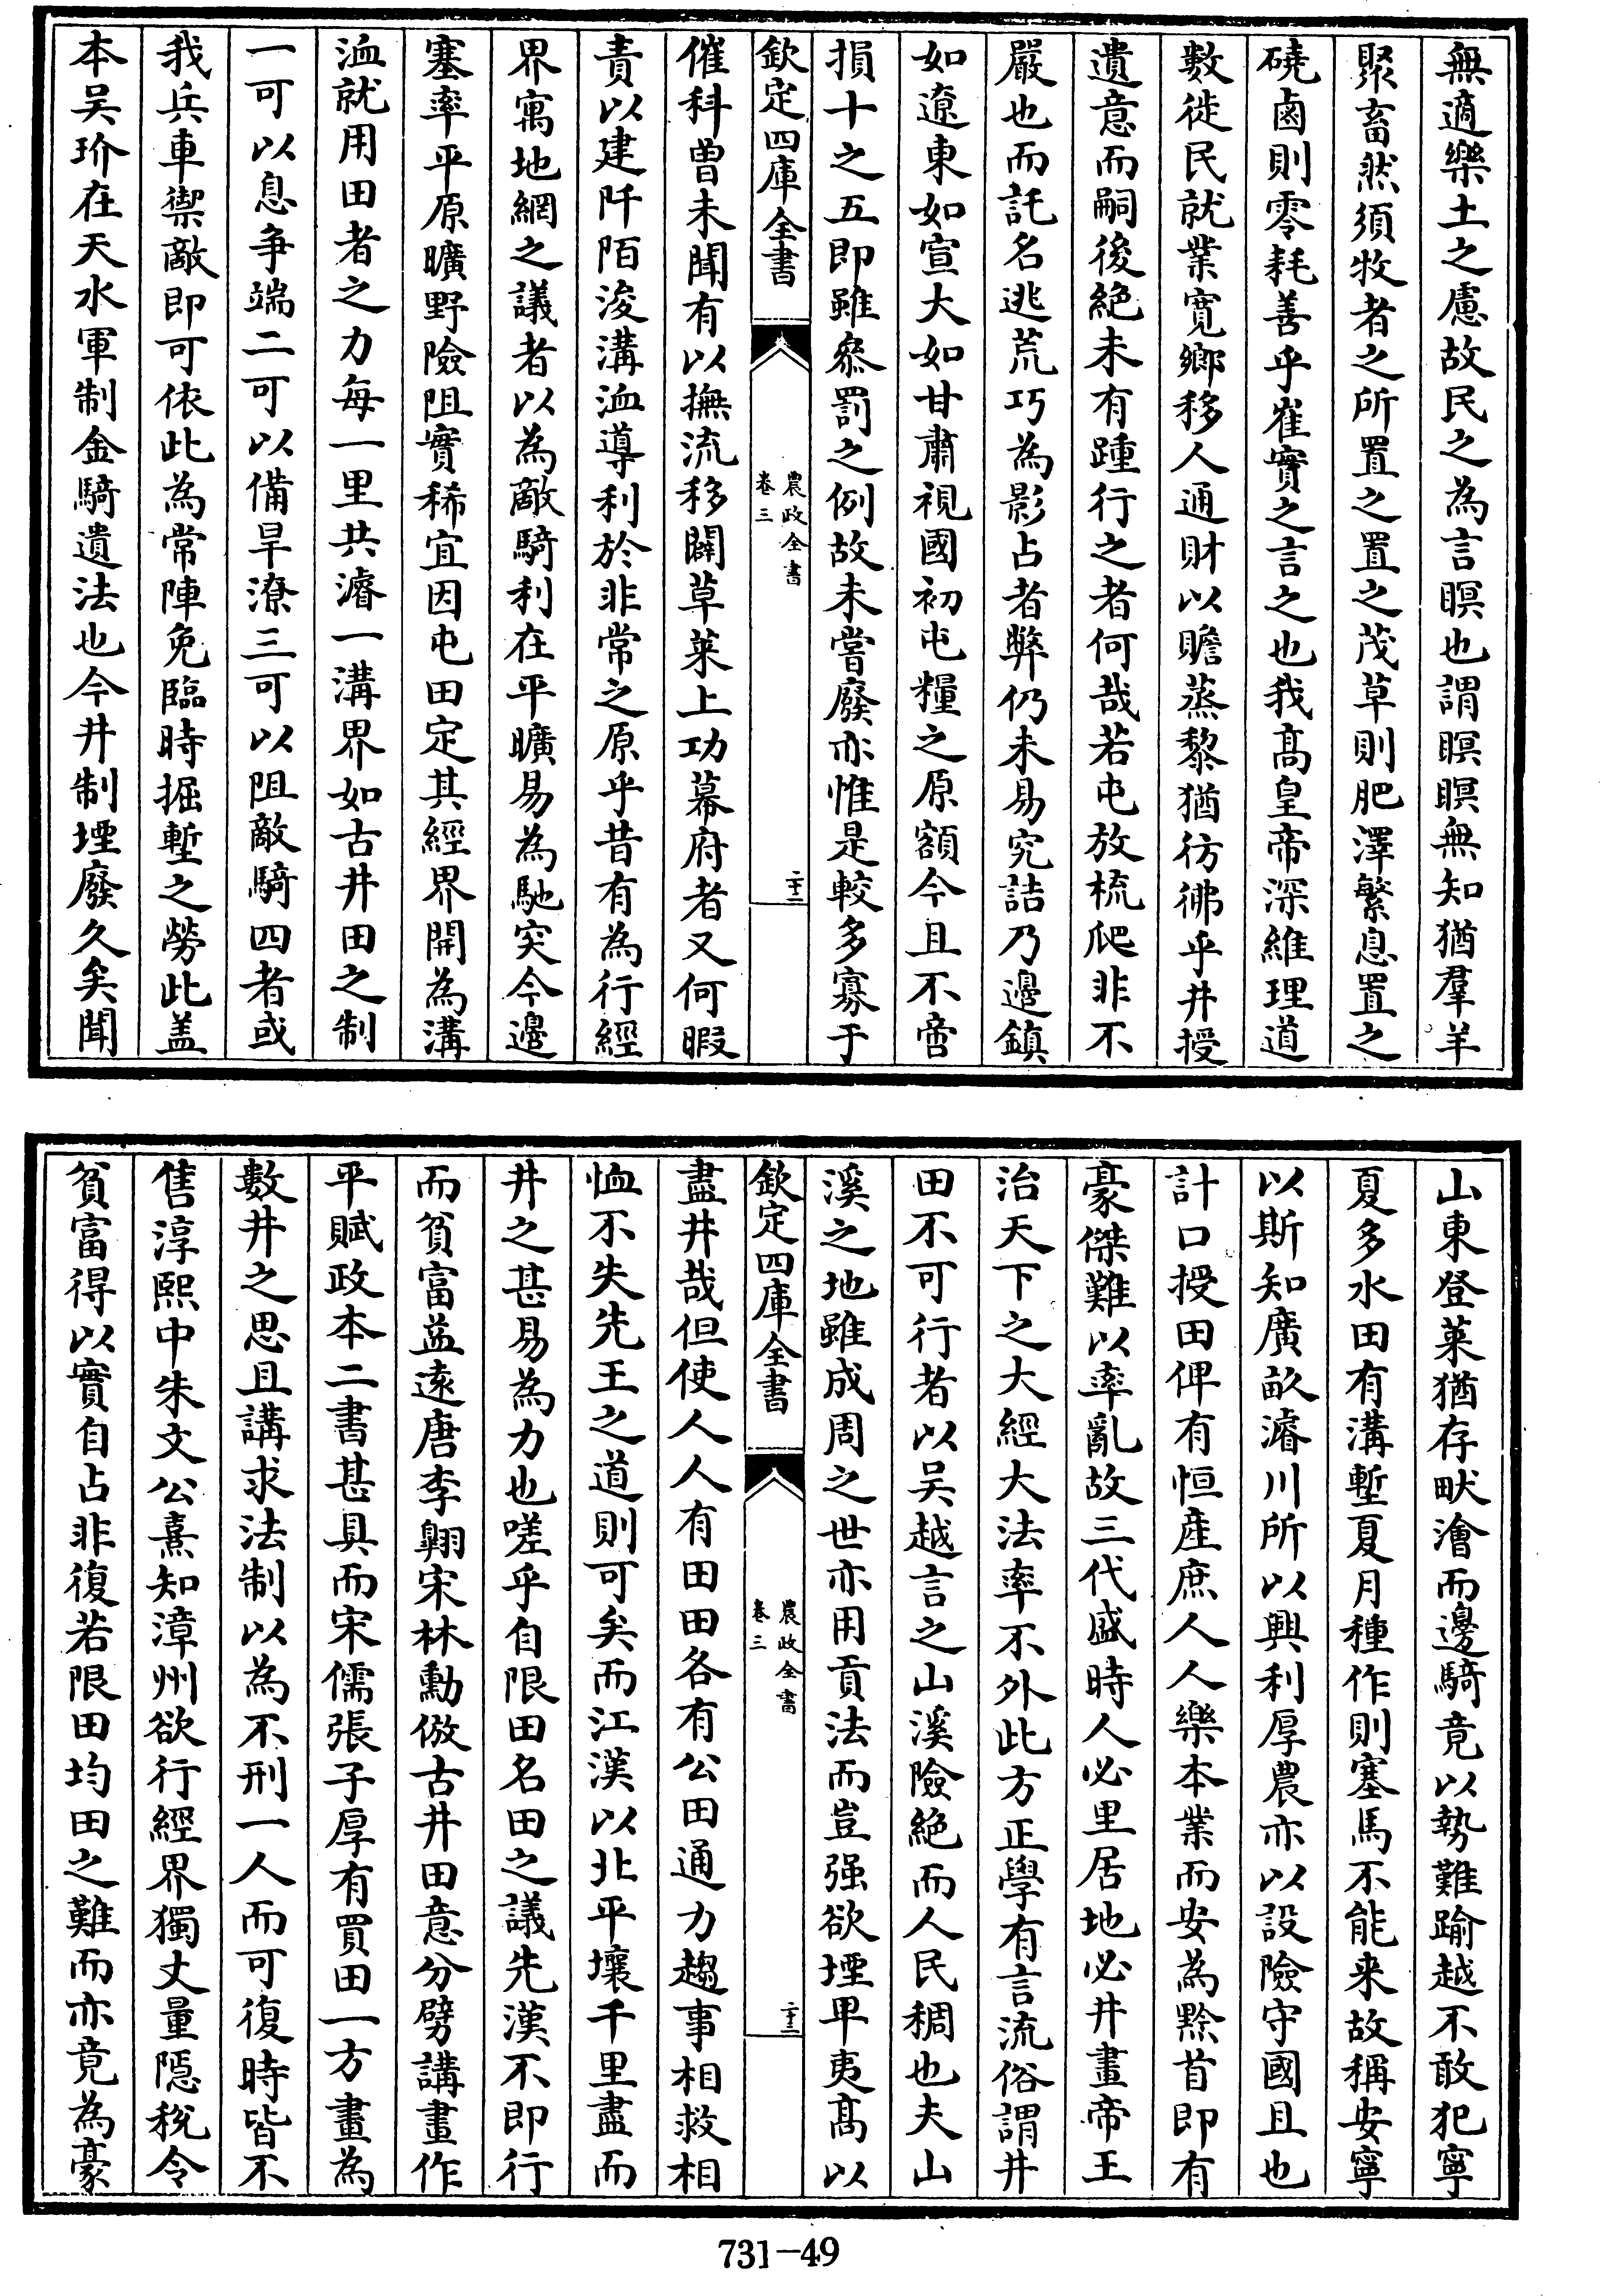 無適樂土之慮故民之為言瞑也謂瞑瞑無知猶羣羊
聚畜然須牧者之所置之置之茂草則肥澤繁息置之
磽鹵則零耗善乎崔實之言之也我髙皇帝深維理道
數徙民就業寛鄉移人通財以贍蒸黎猶彷彿乎井授
遺意而嗣後絶未有踵行之者何哉若屯放梳爬非不
嚴也而託名逃荒巧為影占者弊仍未易究詰乃邉鎮
如遼東如宣大如甘肅視國初屯糧之原額今且不啻
損十之五即雖叅罰之例故未嘗廢亦惟是較多寡于
欽定四庫全書
農政全書
卷三
二十二
催科曽未聞有以撫流移闢草萊上功幕府者又何暇
責以建阡陌浚溝洫導利於非常之原乎昔有為行經
界寓地網之議者以為敵騎利在平曠易為馳突今邉
塞率平原曠野險阻實稀宜因屯田定其經界開為溝
洫就用田者之力每一里共濬一溝界如古井田之制
一可以息争端二可以備旱潦三可以阻敵騎四者或
我兵車禦敵即可依此為常陣免臨時掘塹之勞此盖
本吴玠在天水軍制金騎遺法也今井制堙廢久矣聞
山東登萊猶存畎澮而邊騎竟以勢難踰越不敢犯寧
夏多水田有溝塹夏月種作則塞馬不能来故稱安寧
以斯知廣畝濬川所以興利厚農亦以設險守國且也
計口授田俾有恒產庶人人樂本業而安為黔首即有
豪傑難以率亂故三代盛時人必里居地必井畫帝王
治天下之大經大法率不外此方正學有言流俗謂井
田不可行者以吴越言之山溪險絶而人民稠也夫山
溪之地雖成周之世亦用貢法而豈强欲堙卑夷髙以
欽定四庫全書
農政全書
卷三
二十三
盡井哉但使人人有田田各有公田通力趨事相救相
恤不失先王之道則可矣而江漢以北平壤千里盡而
井之甚易為力也嗟乎自限田名田之議先漢不即行
而貧富益逺唐李翺宋林勳倣古井田意分劈講畫作
平賦政本二書甚具而宋儒張子厚有買田一方畫為
數井之思且講求法制以為不刑一人而可復時皆不
售淳熙中朱文公熹知漳州欲行經界獨丈量隱稅令
貧富得以實自占非復若限田均田之難而亦竟為豪
731-49